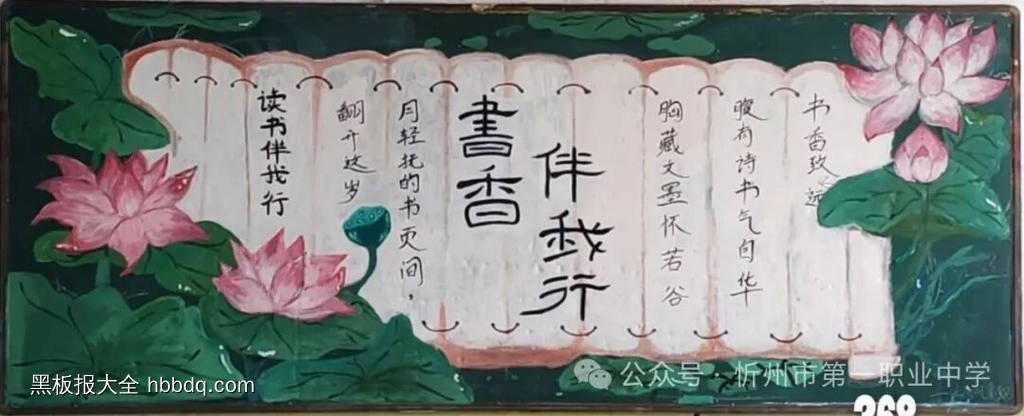 读书伴我行
翻开这岁
月轻抚的书页间，
書香
伴我行
胸藏文墨怀若谷
腹有诗书气自华
书香致远
黑板报大全 hbbdq.com
公众号·忻州市第一职业中学
268